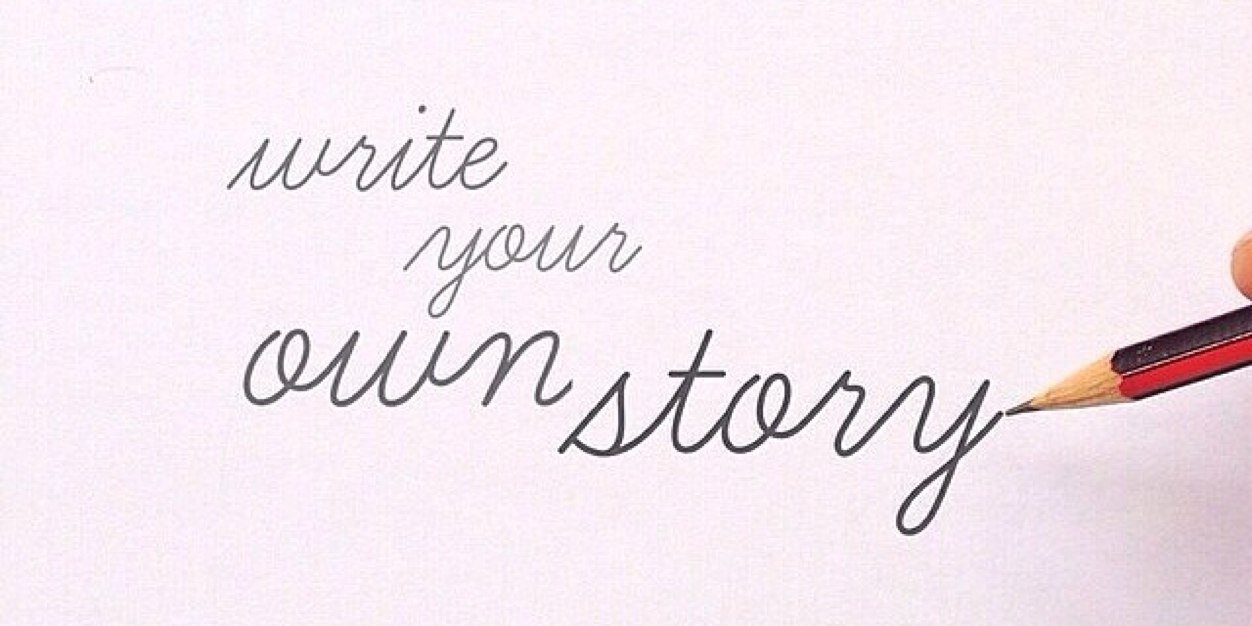 write
your
own story